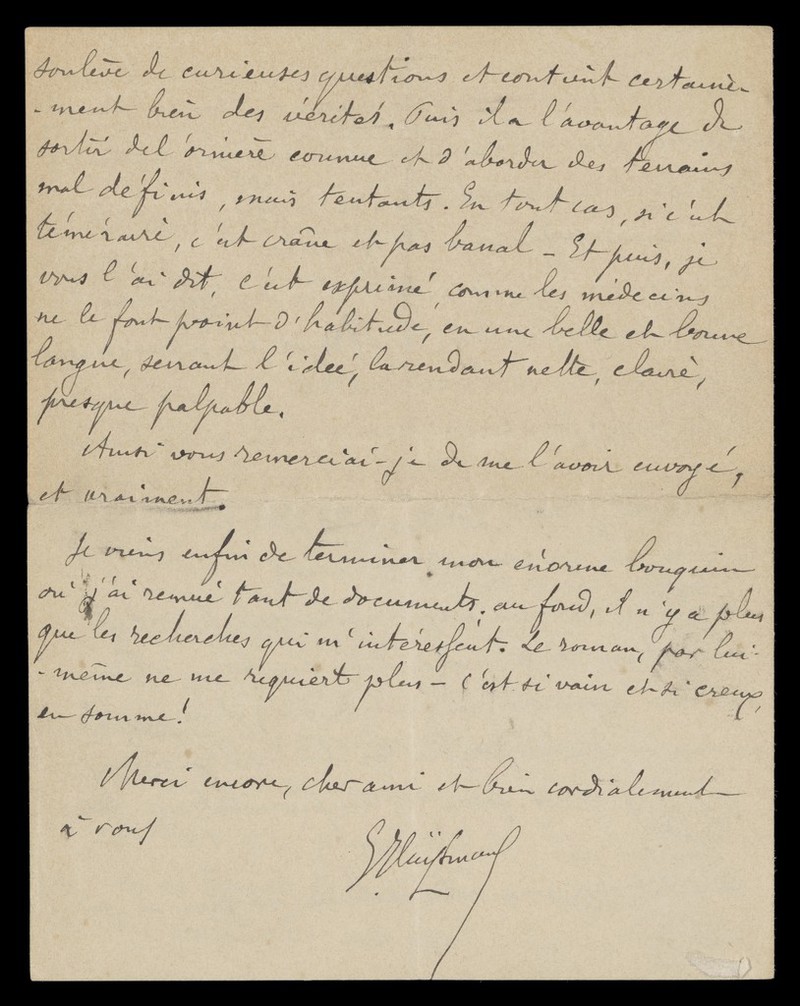 soulève de curieuses questions et contient certaine-
-ment bien des vérités. Puis il a l'avantage de
sortir de l'ornière connue et d'aborder des terrains
mal définis, mais tentants. En tout cas, si c'est
téméraire, c'est crâne et pas banal - Et puis, je
vous l'ai dit, c'est exprimé, comme les médecins
ne le font point d'habitude, en une belle et bonne
langue, serrant l'idée, la rendant nette, claire,
presque palpable.
Aussi vous remerciai-je de me l'avoir envoyé,
et vraiment.
Je viens enfin de terminer mon énorme bouquin
où j'ai remué tant de documents. au fond, il n'y a plus
que les recherches qui m'intéressent. Le roman, par lui-
-même ne me requiert plus - c'est si vain et si creux,
en somme!
Merci encore, cher ami et bien cordialement
à vous
GHuysmans